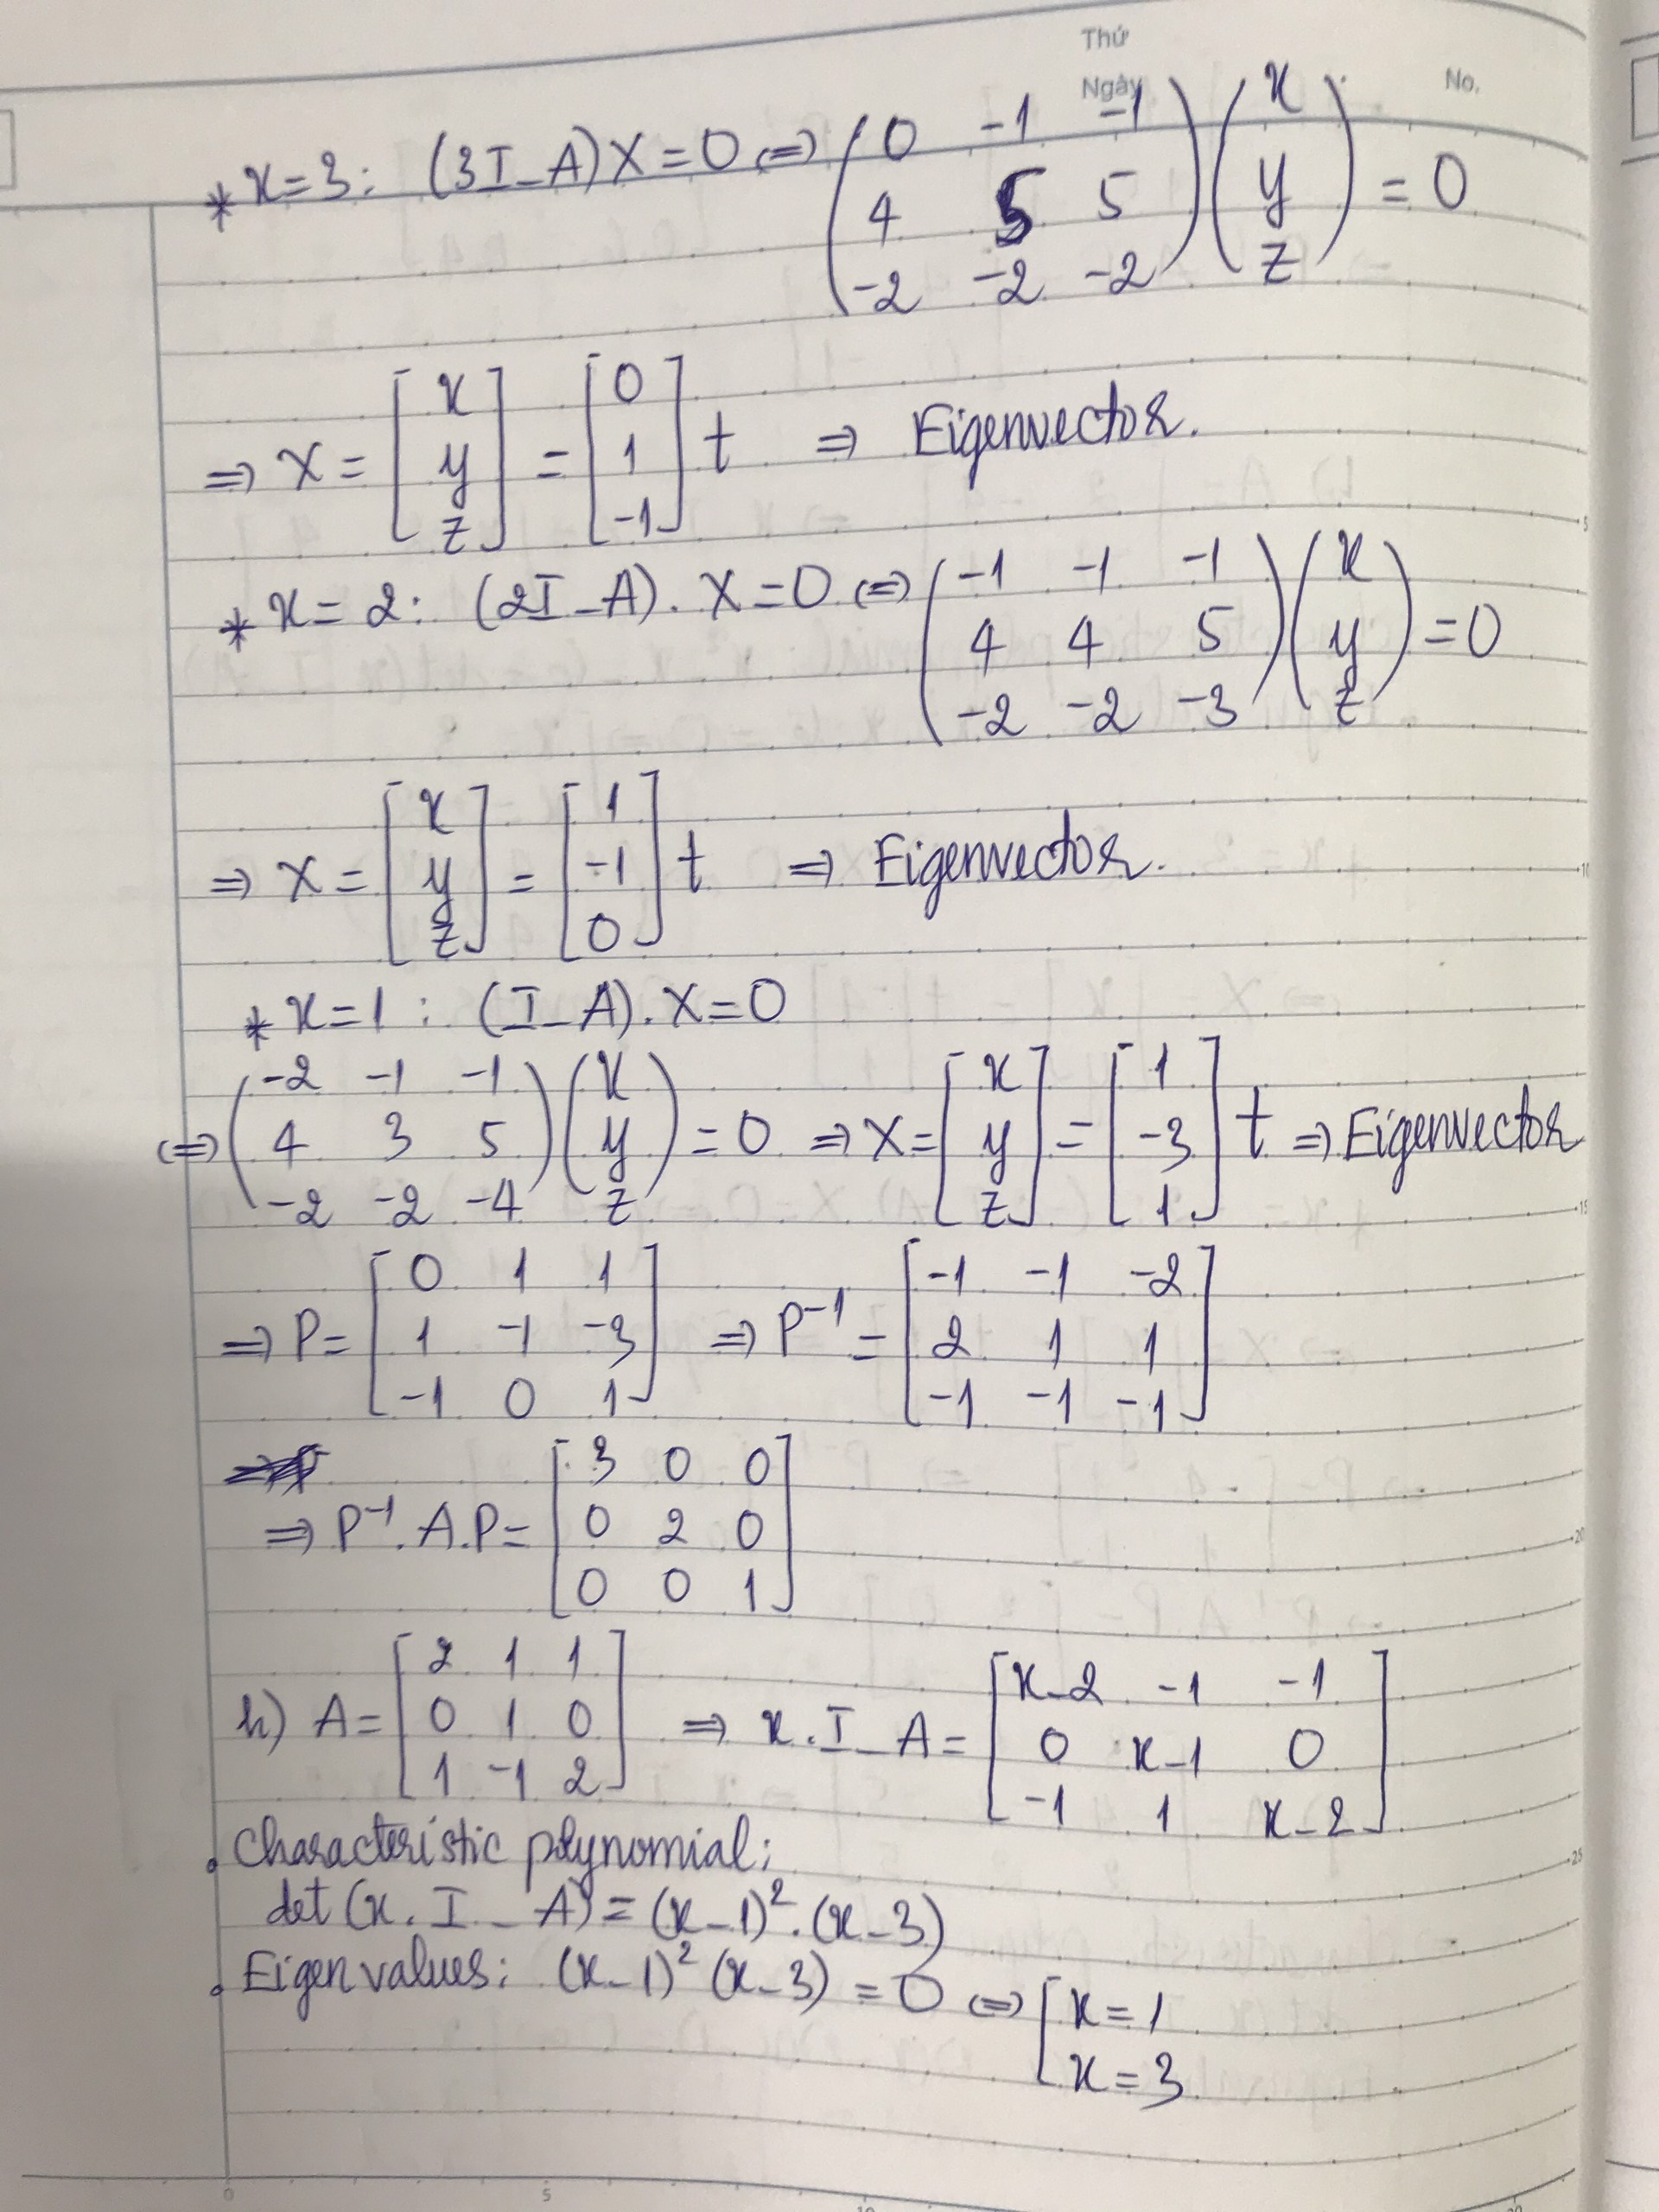 Thứ
Ngày
No.
* x=3: (3I-A)X=0 ⇔ (0 -1 -1; 4 5 5; -2 -2 -2)(x; y; z) = 0
⇒ X = [x; y; z] = [0; 1; -1] t ⇒ Eigenvector.
* x=2: (2I-A).X=0 ⇔ (-1 -1 -1; 4 4 5; -2 -2 -3)(x; y; z) = 0
⇒ X = [x; y; z] = [1; -1; 0] t ⇒ Eigenvector.
* x=1: (I-A).X=0
⇔ (-2 -1 -1; 4 3 5; -2 -2 -4)(x; y; z) = 0 ⇒ X = [x; y; z] = [1; -3; 1] t ⇒ Eigenvector
⇒ P = [0 1 1; 1 -1 -3; -1 0 1] ⇒ P⁻¹ = [-1 -1 -2; 2 1 1; -1 -1 -1]
⇒ P⁻¹.A.P = [3 0 0; 0 2 0; 0 0 1]
h) A = [2 1 1; 0 1 0; 1 -1 2] ⇒ x.I-A = [x-2 -1 -1; 0 x-1 0; -1 1 x-2]
. Characteristic polynomial:
det(x.I-A) = (x-1)².(x-3)
. Eigenvalues: (x-1)²(x-3) = 0 ⇔ [x=1; x=3
5
10
15
20
25
0
5
10
20